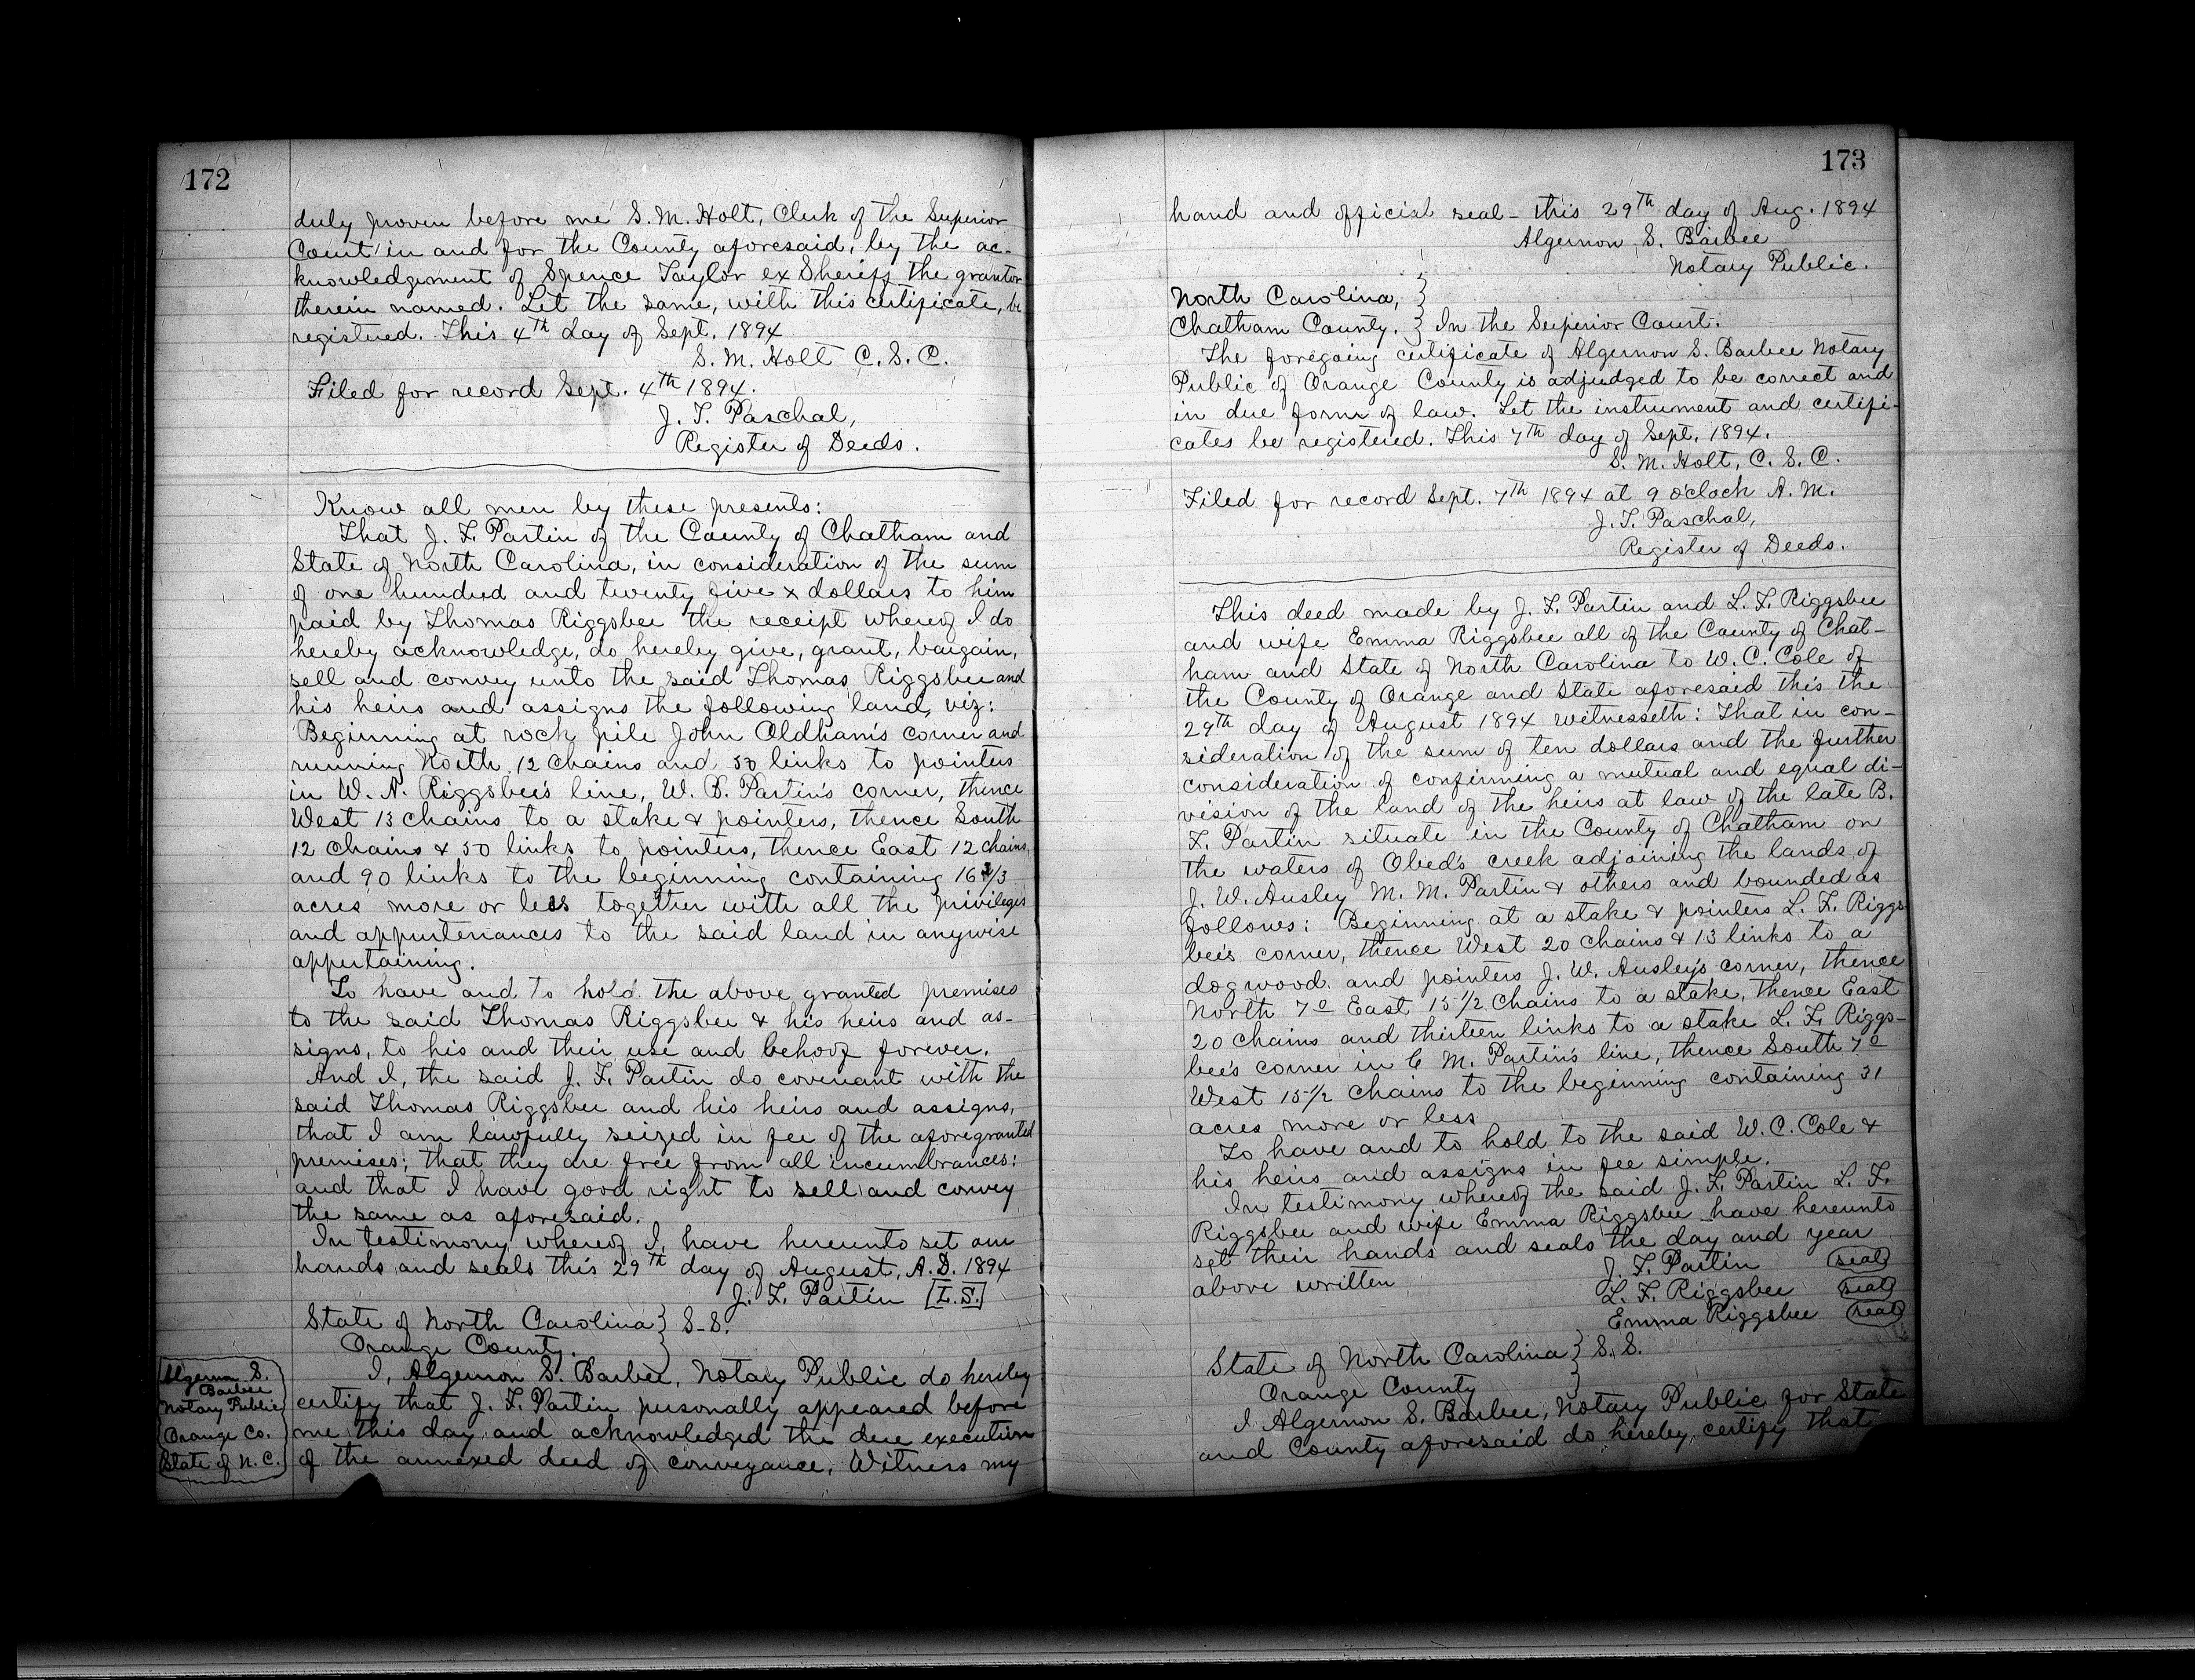 172
duly proven before me S. M. Holt, Clerk of the Superior
Court in and for the County aforesaid, by the ac-
knowledgement of Spence Taylor ex Sheriff the grantor
therein named. Let the same, with this certificate, be
registered. This 4th day of Sept. 1894
S. M. Holt C. S. C.
Filed for record Sept. 4th 1894.
J. T. Paschal,
Register of Deeds.
Know all men by these presents:
That J. F. Partin of the County of Chatham and
State of North Carolina, in consideration of the sum
of one hundred and twenty five x dollars to him
paid by Thomas Riggsbee the receipt whereof I do
hereby acknowledge, do hereby give, grant, bargain,
sell and convey unto the said Thomas Riggsbee and
his heirs and assigns the following land, viz:
Beginning at rock pile John Oldham's corner and
running North 12 chains and 50 links to pointers
in W. A. Riggsbee's line, W. B. Partin's corner, thence
West 13 chains to a stake & pointers, thence South
12 chains & 50 links to pointers, thence East 12 chains
and 90 links to the beginning containing 16 2/3
acres more or less together with all the privileges
and appurtenances to the said land in anywise
appertaining.
To have and to hold the above granted premises
to the said Thomas Riggsbee & his heirs and as-
signs, to his and their use and behoof forever.
And I, the said J. F. Partin do covenant with the
said Thomas Riggsbee and his heirs and assigns,
that I am lawfully seized in fee of the aforegranted
premises; that they are free from all incumbrances:
and that I have good right to sell and convey
the same as aforesaid.
In testimony whereof I, have hereunto set our
hands and seals this 29th day of August, A. D. 1894
J. F. Partin [L. S.]
State of North Carolina } S-S.
Orange County. }
I, Algernon S. Barbee, Notary Public do hereby
certify that J. F. Partin personally appeared before
me this day and acknowledged the due execution
of the annexed deed of conveyance, Witness my
Algernon S.
Barbee
Notary Public
Orange Co.
State of N. C.
173
hand and official seal - this 29th day of Aug. 1894
Algernon S. Barbee
Notary Public.
North Carolina, }
Chatham County. } In the Superior Court.
The foregoing certificate of Algernon S. Barbee Notary
Public of Orange County is adjudged to be correct and
in due form of law. Let the instrument and certifi-
cates be registered. This 7th day of Sept. 1894.
S. M. Holt, C. S. C.
Filed for record Sept. 7th 1894 at 9 o'clock A. M.
J. T. Paschal,
Register of Deeds.
This deed made by J. F. Partin and L. F. Riggsbee
and wife Emma Riggsbee all of the County of Chat-
ham and State of North Carolina to W. C. Cole of
the County of Orange and State aforesaid this the
29th day of August 1894 witnesseth: That in con-
sideration of the sum of ten dollars and the further
consideration of confirming a mutual and equal di-
vision of the land of the heirs at law of the late B.
F. Partin situate in the County of Chatham on
the waters of Obed's creek adjoining the lands of
J. W. Ausley M. M. Partin & others and bounded as
follows: Beginning at a stake & pointers L. F. Riggs-
bee's corner, thence West 20 chains & 13 links to a
dogwood and pointers J. W. Ausley's corner, thence
North 7° East 15 1/2 chains to a stake, thence East
20 chains and thirteen links to a stake L. F. Riggs-
bee's corner in C M. Partin's line, thence South 7°
West 15 1/2 chains to the beginning containing 31
acres more or less
To have and to hold to the said W. C. Cole &
his heirs and assigns in fee simple.
In testimony whereof the said J. F. Partin L. F.
Riggsbee and wife Emma Riggsbee have hereunto
set their hands and seals the day and year
above written
J. F. Partin (seal)
L. F. Riggsbee (seal)
Emma Riggsbee (seal)
State of North Carolina } S. S.
Orange County }
I Algernon S. Barbee, Notary Public for State
and County aforesaid do hereby certify that